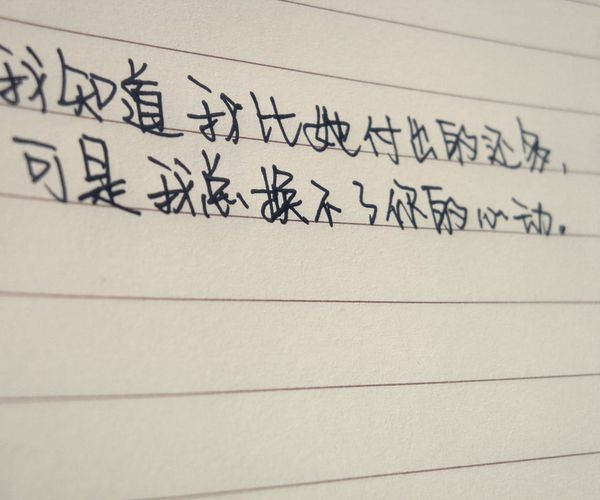 我知道我比她付出的还多,
可是我总换不了你的心动。